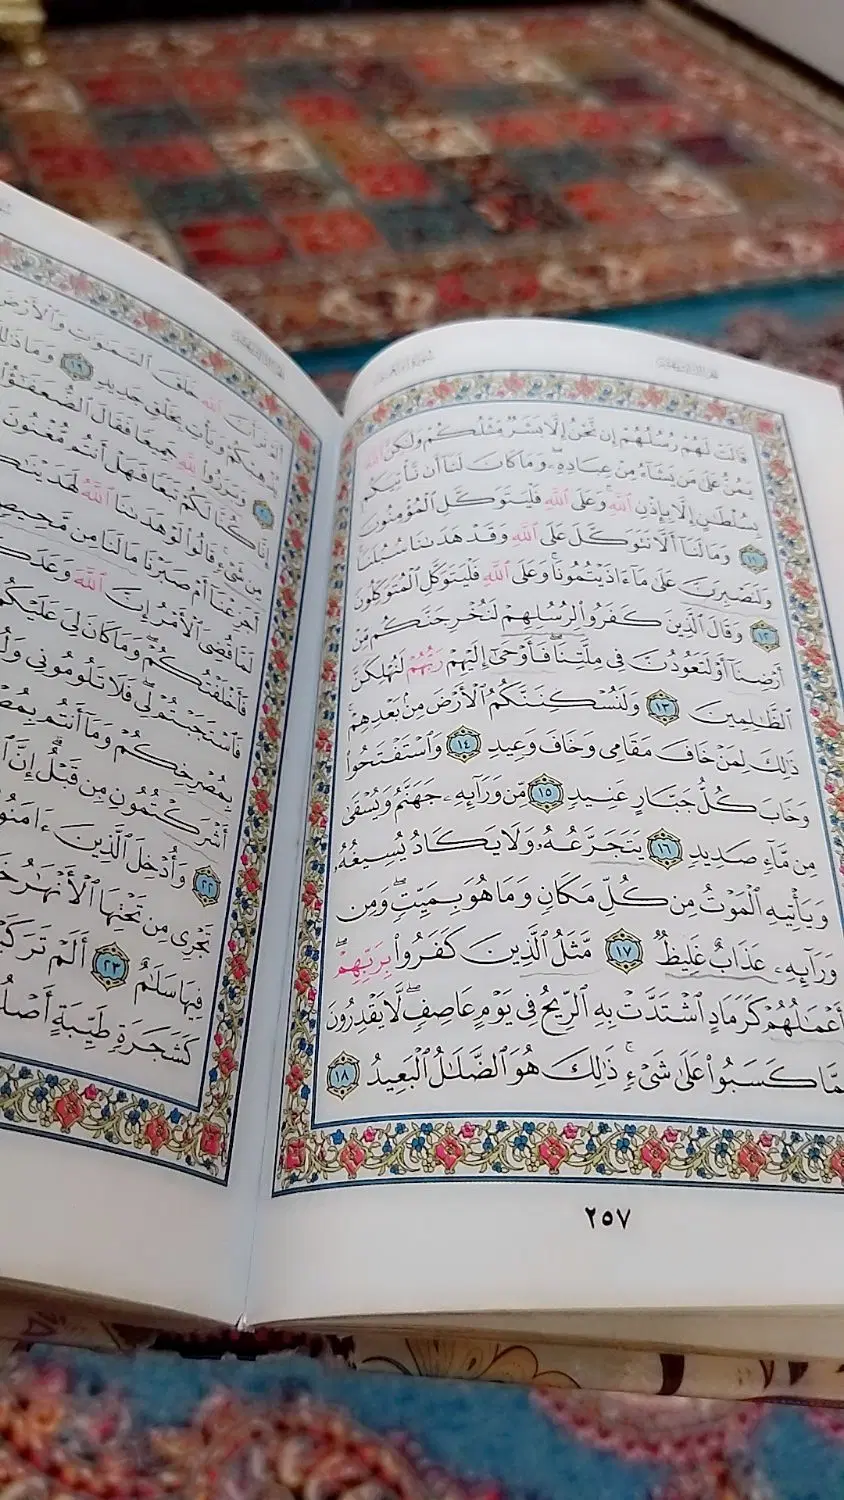 سورة إبراهيم
قَالَتْ لَهُمْ رُسُلُهُمْ إِن نَّحْنُ إِلَّا بَشَرٌ مِّثْلُكُمْ وَلَٰكِنَّ ٱللَّهَ
يَمُنُّ عَلَىٰ مَن يَشَآءُ مِنْ عِبَادِهِۦ ۖ وَمَا كَانَ لَنَآ أَن نَّأْتِيَكُم
بِسُلْطَٰنٍ إِلَّا بِإِذْنِ ٱللَّهِ ۚ وَعَلَى ٱللَّهِ فَلْيَتَوَكَّلِ ٱلْمُؤْمِنُونَ
١١ وَمَا لَنَآ أَلَّا نَتَوَكَّلَ عَلَى ٱللَّهِ وَقَدْ هَدَىٰنَا سُبُلَنَا ۚ
وَلَنَصْبِرَنَّ عَلَىٰ مَآ ءَاذَيْتُمُونَا ۚ وَعَلَى ٱللَّهِ فَلْيَتَوَكَّلِ ٱلْمُتَوَكِّلُونَ
١٢ وَقَالَ ٱلَّذِينَ كَفَرُوا۟ لِرُسُلِهِمْ لَنُخْرِجَنَّكُم مِّنْ
أَرْضِنَآ أَوْ لَتَعُودُنَّ فِى مِلَّتِنَا ۖ فَأَوْحَىٰٓ إِلَيْهِمْ رَبُّهُمْ لَنُهْلِكَنَّ
ٱلظَّٰلِمِينَ ١٣ وَلَنُسْكِنَنَّكُمُ ٱلْأَرْضَ مِنۢ بَعْدِهِمْ ۚ
ذَٰلِكَ لِمَنْ خَافَ مَقَامِى وَخَافَ وَعِيدِ ١٤ وَٱسْتَفْتَحُوا۟
وَخَابَ كُلُّ جَبَّارٍ عَنِيدٍ ١٥ مِّن وَرَآئِهِۦ جَهَنَّمُ وَيُسْقَىٰ
مِن مَّآءٍ صَدِيدٍ ١٦ يَتَجَرَّعُهُۥ وَلَا يَكَادُ يُسِيغُهُۥ
وَيَأْتِيهِ ٱلْمَوْتُ مِن كُلِّ مَكَانٍ وَمَا هُوَ بِمَيِّتٍ ۖ وَمِن
وَرَآئِهِۦ عَذَابٌ غَلِيظٌ ١٧ مَّثَلُ ٱلَّذِينَ كَفَرُوا۟ بِرَبِّهِمْ ۖ
أَعْمَٰلُهُمْ كَرَمَادٍ ٱشْتَدَّتْ بِهِ ٱلرِّيحُ فِى يَوْمٍ عَاصِفٍ ۖ لَّا يَقْدِرُونَ
مِمَّا كَسَبُوا۟ عَلَىٰ شَىْءٍ ۚ ذَٰلِكَ هُوَ ٱلضَّلَٰلُ ٱلْبَعِيدُ ١٨
٢٥٧
أَلَمْ تَرَ أَنَّ ٱللَّهَ خَلَقَ ٱلسَّمَٰوَٰتِ وَٱلْأَرْضَ
يُذْهِبْكُمْ وَيَأْتِ بِخَلْقٍ جَدِيدٍ ١٩ وَمَا ذَٰلِكَ
٢٠ وَبَرَزُوا۟ لِلَّهِ جَمِيعًا فَقَالَ ٱلضُّعَفَٰٓؤُا۟
إِنَّا كُنَّا لَكُمْ تَبَعًا فَهَلْ أَنتُم مُّغْنُونَ
مِن شَىْءٍ ۚ قَالُوا۟ لَوْ هَدَىٰنَا ٱللَّهُ لَهَدَيْنَٰكُمْ
أَجَزِعْنَآ أَمْ صَبَرْنَا مَا لَنَا مِن مَّحِيصٍ
لَمَّا قُضِىَ ٱلْأَمْرُ إِنَّ ٱللَّهَ وَعَدَكُمْ
فَأَخْلَفْتُكُمْ ۖ وَمَا كَانَ لِىَ عَلَيْكُم
فَٱسْتَجَبْتُمْ لِى ۖ فَلَا تَلُومُونِى
بِمُصْرِخِكُمْ وَمَآ أَنتُم
أَشْرَكْتُمُونِ مِن قَبْلُ ۗ إِنَّ
٢٢ وَأُدْخِلَ ٱلَّذِينَ ءَامَنُوا۟
تَجْرِى مِن تَحْتِهَا ٱلْأَنْهَٰرُ
فِيهَا سَلَٰمٌ ٢٣ أَلَمْ تَرَ
كَشَجَرَةٍ طَيِّبَةٍ